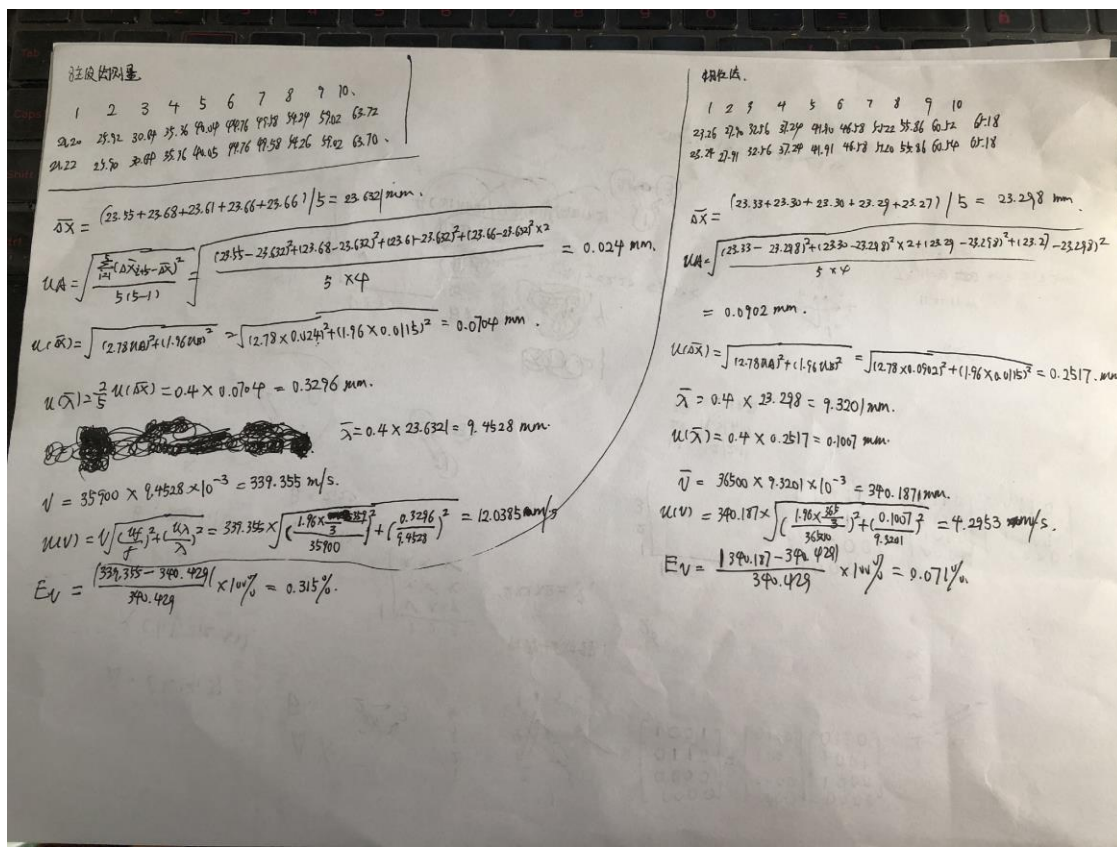 驻波法测量
1 2 3 4 5 6 7 8 9 10、
25.92 30.64 35.36 44.76 49.58 54.24 59.02 63.72
21.22 25.90 30.64 35.36 40.05 44.76 49.58 54.26 59.02 63.70、
Δx̄ = (23.55+23.68+23.61+23.66+23.66)/5 = 23.632mm.
uA = √(Σ(Δx̄i+5-Δx̄)²/5(5-1)) = √((23.55-23.632)²+(23.68-23.632)²+(23.61-23.632)²+(23.66-23.632)²×2/5×4) = 0.024 mm.
u(Δx̄) = √((2.78uA)²+(1.96uB)²) = √((2.78×0.024)²+(1.96×0.0115)²) = 0.0704 mm.
u(λ̄) = 2/5 u(Δx̄) = 0.4 × 0.0704 = 0.3296 mm.
λ̄ = 0.4 × 23.632 = 9.4528 mm.
V = 35900 × 9.4528 × 10⁻³ = 339.355 m/s.
u(V) = V√((uf/f)²+(uλ/λ)²) = 339.355 × √((1.96×359/3/35900)²+(0.3296/9.4528)²) = 12.0385 m/s
Ev = |339.355-340.429|/340.429 ×100% = 0.315%.
相位法.
1 2 3 4 5 6 7 8 9 10
23.26 27.90 32.56 37.24 41.90 46.58 51.22 55.86 60.52 65.18
23.24 27.91 32.56 37.24 41.91 46.58 51.20 55.86 60.54 65.18
Δx̄ = (23.33+23.30+23.30+23.29+23.27)/5 = 23.298 mm.
uA = √((23.33-23.298)²+(23.30-23.298)²×2+(23.29-23.298)²+(23.27-23.298)²/5×4)
= 0.0902 mm.
u(Δx̄) = √((2.78uA)²+(1.96uB)²) = √((2.78×0.0902)²+(1.96×0.0115)²) = 0.2517. mm
λ̄ = 0.4 × 23.298 = 9.3201mm.
u(λ̄) = 0.4 × 0.2517 = 0.1007 mm.
V̄ = 36500 × 9.3201 × 10⁻³ = 340.187mm.
u(V) = 340.187 × √((1.96×365/3/36500)²+(0.1007/9.3201)²) = 4.2953 m/s.
Ev = |340.187-340.429|/340.429 ×100% = 0.071%.